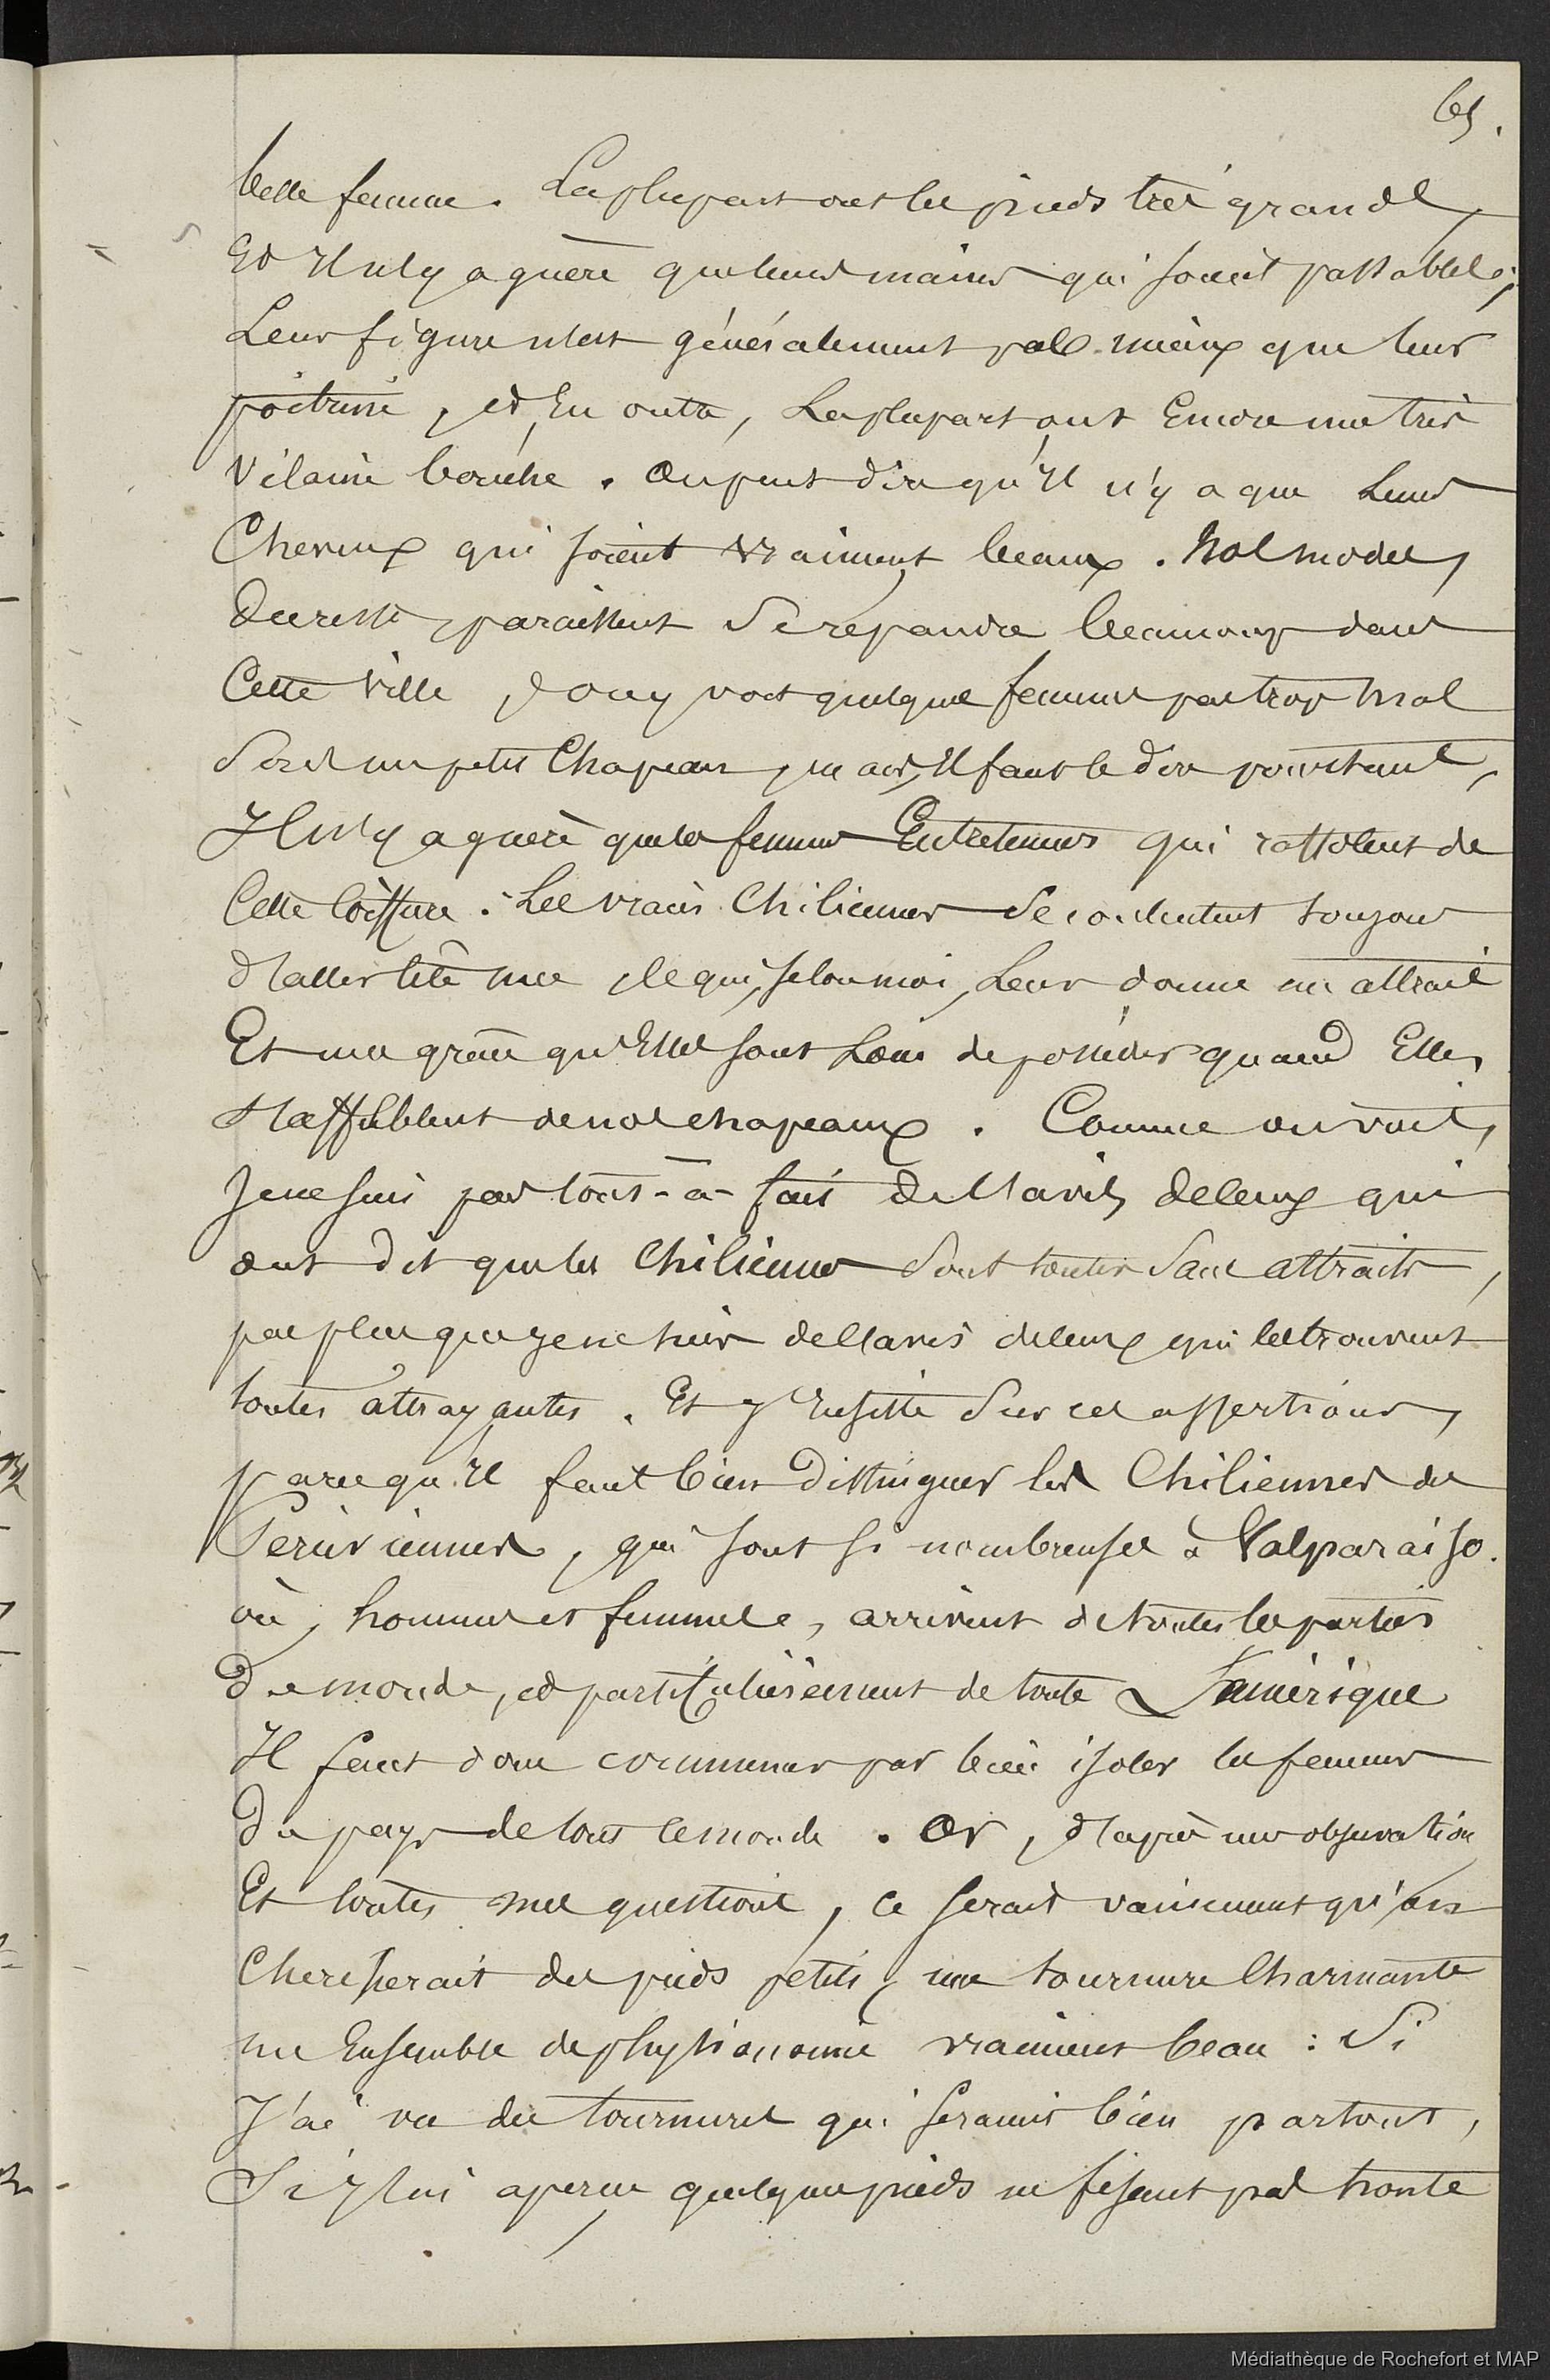 65.
belle femme. La plupart ont les pieds très grands,
Et Il n'y a guère que leurs mains qui soient passables;
Leur figure n'est généralement pas mieux que leur
poitrine, et, En outre, La plupart ont Encore une très
vilaine bouche. On peut dire qu'Il n'y a que Leurs
Cheveux qui soient vraiment beaux. Nos modes,
du reste, paraissent se répandre beaucoup dans
Cette ville, & on y voit quelques femmes pas trop mal
sous un petit Chapeau, mais, Il faut le dire pourtant,
Il n'y a guère que les femmes Entretenues qui raffolent de
Cette Coiffure. Les vraies Chiliennes se contentent toujours
d'aller tête nue, Ce qui, selon moi, Leur donne un attrait
Et une grâce qu'Elles sont Loin de posséder quand Elles
s'affublent de nos chapeaux. Comme on voit,
Je ne suis pas tout-à-fait de l'avis de ceux qui
ont dit que les Chiliennes sont toutes sans attraits,
pas plus que je ne suis de l'avis de ceux qui les trouvent
toutes attrayantes. Et j'Insiste sur ces assertions,
parce qu'Il faut bien distinguer les Chiliennes des
Péruviennes, qui sont si nombreuses à Valparaiso.
où, hommes et femmes, arrivent de toutes les parties
du monde, et particulièrement de toute L'amérique
Il faut donc commencer par bien isoler les femmes
du pays de tout le monde. Or, d'après mes observations
Et toutes mes questions, ce serait vainement qu'on
Chercherait des pieds petits, une tournure Charmante
un Ensemble de physionomie vraiment beau : Si
J'ai vu des tournures qui seraient bien partout,
Si j'ai aperçu quelques pieds ne fesant pas honte
Médiathèque de Rochefort et MAP